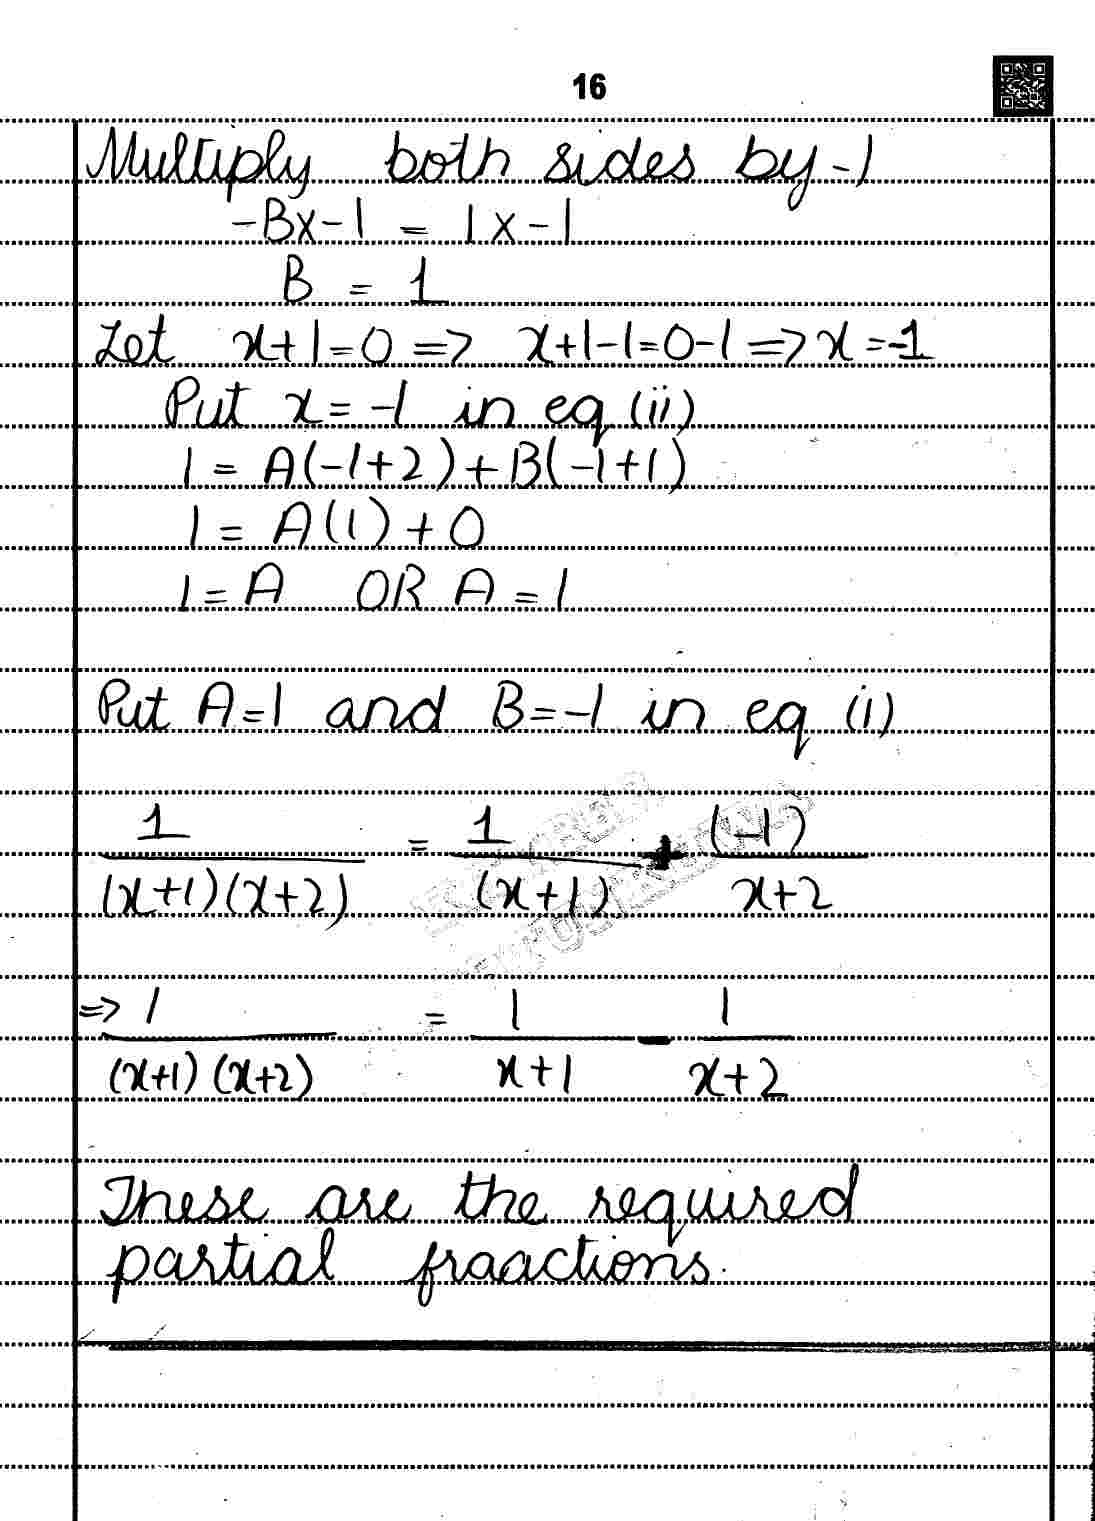 16
Multiply both sides by -1
-Bx-1 = 1x-1
B = 1
Let x+1=0 => x+1-1=0-1=>x=-1
Put x=-1 in eq (ii)
1 = A(-1+2)+B(-1+1)
1 = A(1)+0
1 = A OR A = 1
Put A=1 and B=-1 in eq (i)
1/(x+1)(x+2) = 1/(x+1) + (-1)/x+2
=> 1/(x+1)(x+2) = 1/x+1 - 1/x+2
These are the required
partial fraactions.